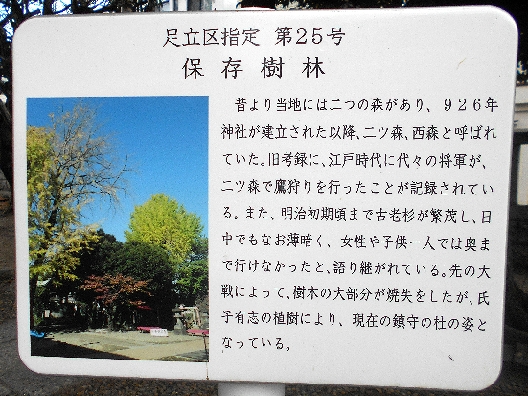 足立区指定 第25号
保存樹林
昔より当地には二つの森があり、926年
神社が建立された以降、二ツ森、西森と呼ばれ
ていた。旧考録に、江戸時代に代々の将軍が、
二ツ森で鷹狩りを行ったことが記録されてい
る。また、明治初期頃まで古老杉が繁茂し、日
中でもなお薄暗く、女性や子供一人では奥ま
で行けなかったと、語り継がれている。先の大
戦によって、樹木の大部分が焼失をしたが、氏
子有志の植樹により、現在の鎮守の杜の姿と
なっている。